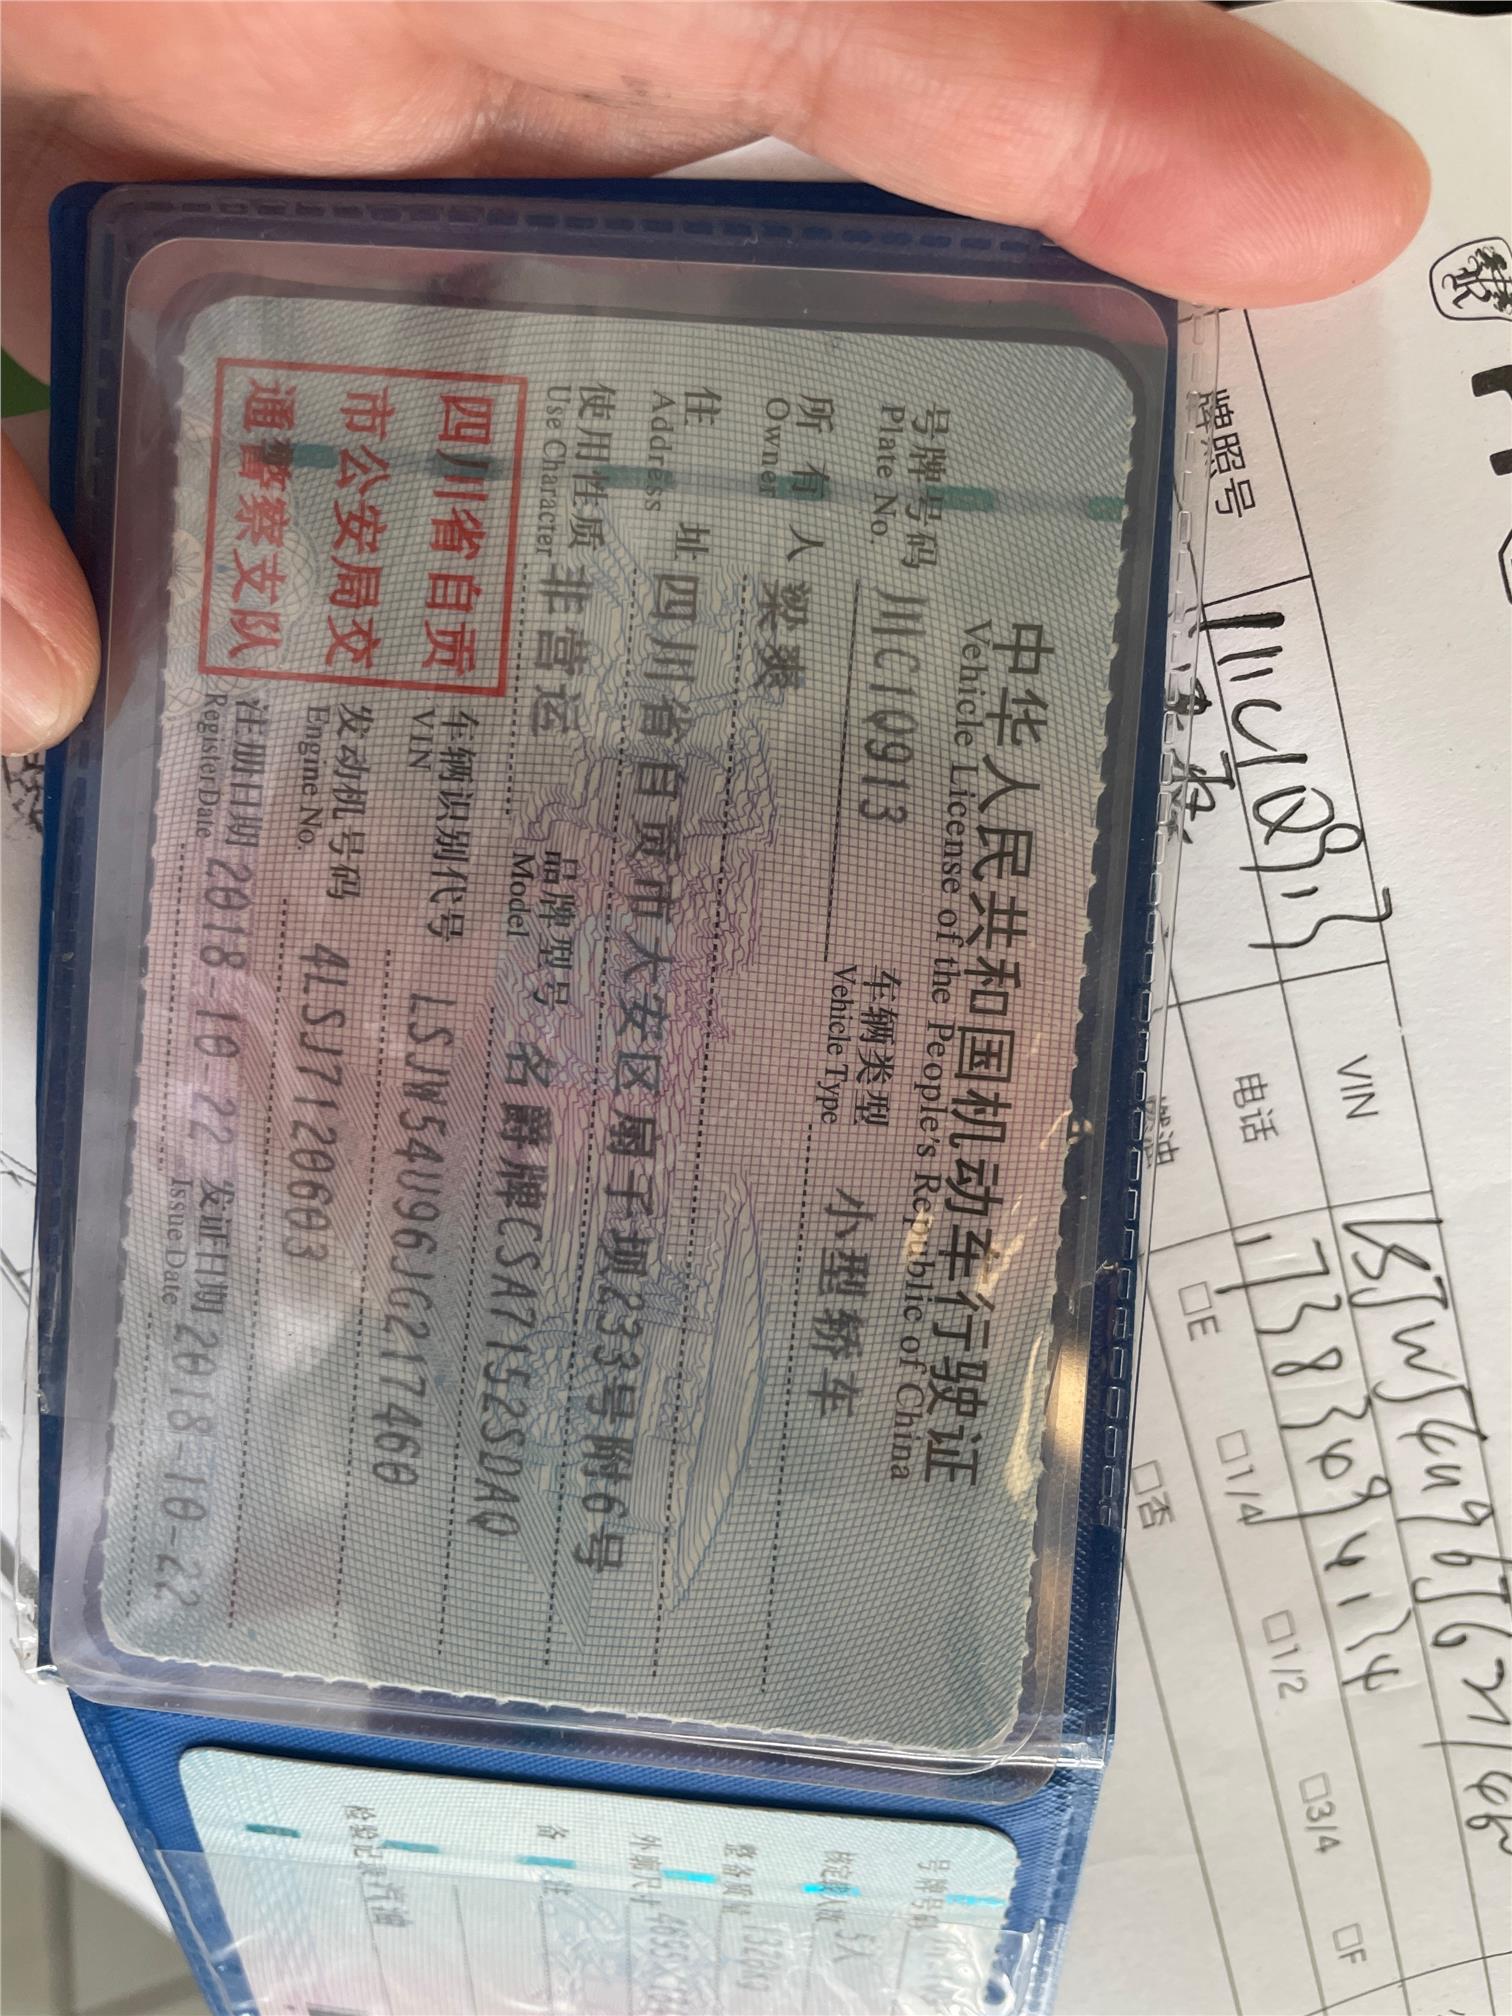 中华人民共和国机动车行驶证
Vehicle License of the People's Republic of China
号牌号码 川C1Q913 车辆类型 小型轿车
Plate No. Vehicle Type
所有人 梁爽
Owner
住址 四川省自贡市大安区扇子坝23号附6号
Address
使用性质 非营运 品牌型号 名爵牌CSA7152SDAQ
Use Character Model
车辆识别代号 LSJW54U96JG217460
VIN
发动机号码 4LSJ7120603
Engine No.
注册日期 2018-10-22 发证日期 2018-10-22
Register Date Issue Date
四川省自贡
市公安局交
通警察支队
号牌号码
核定载人数 5人
整备质量
外廓尺寸
备注
检验记录 汽油
牌照号 川C1Q913 VIN
电话
□E □1/4 □1/2 □3/4 □F
□否